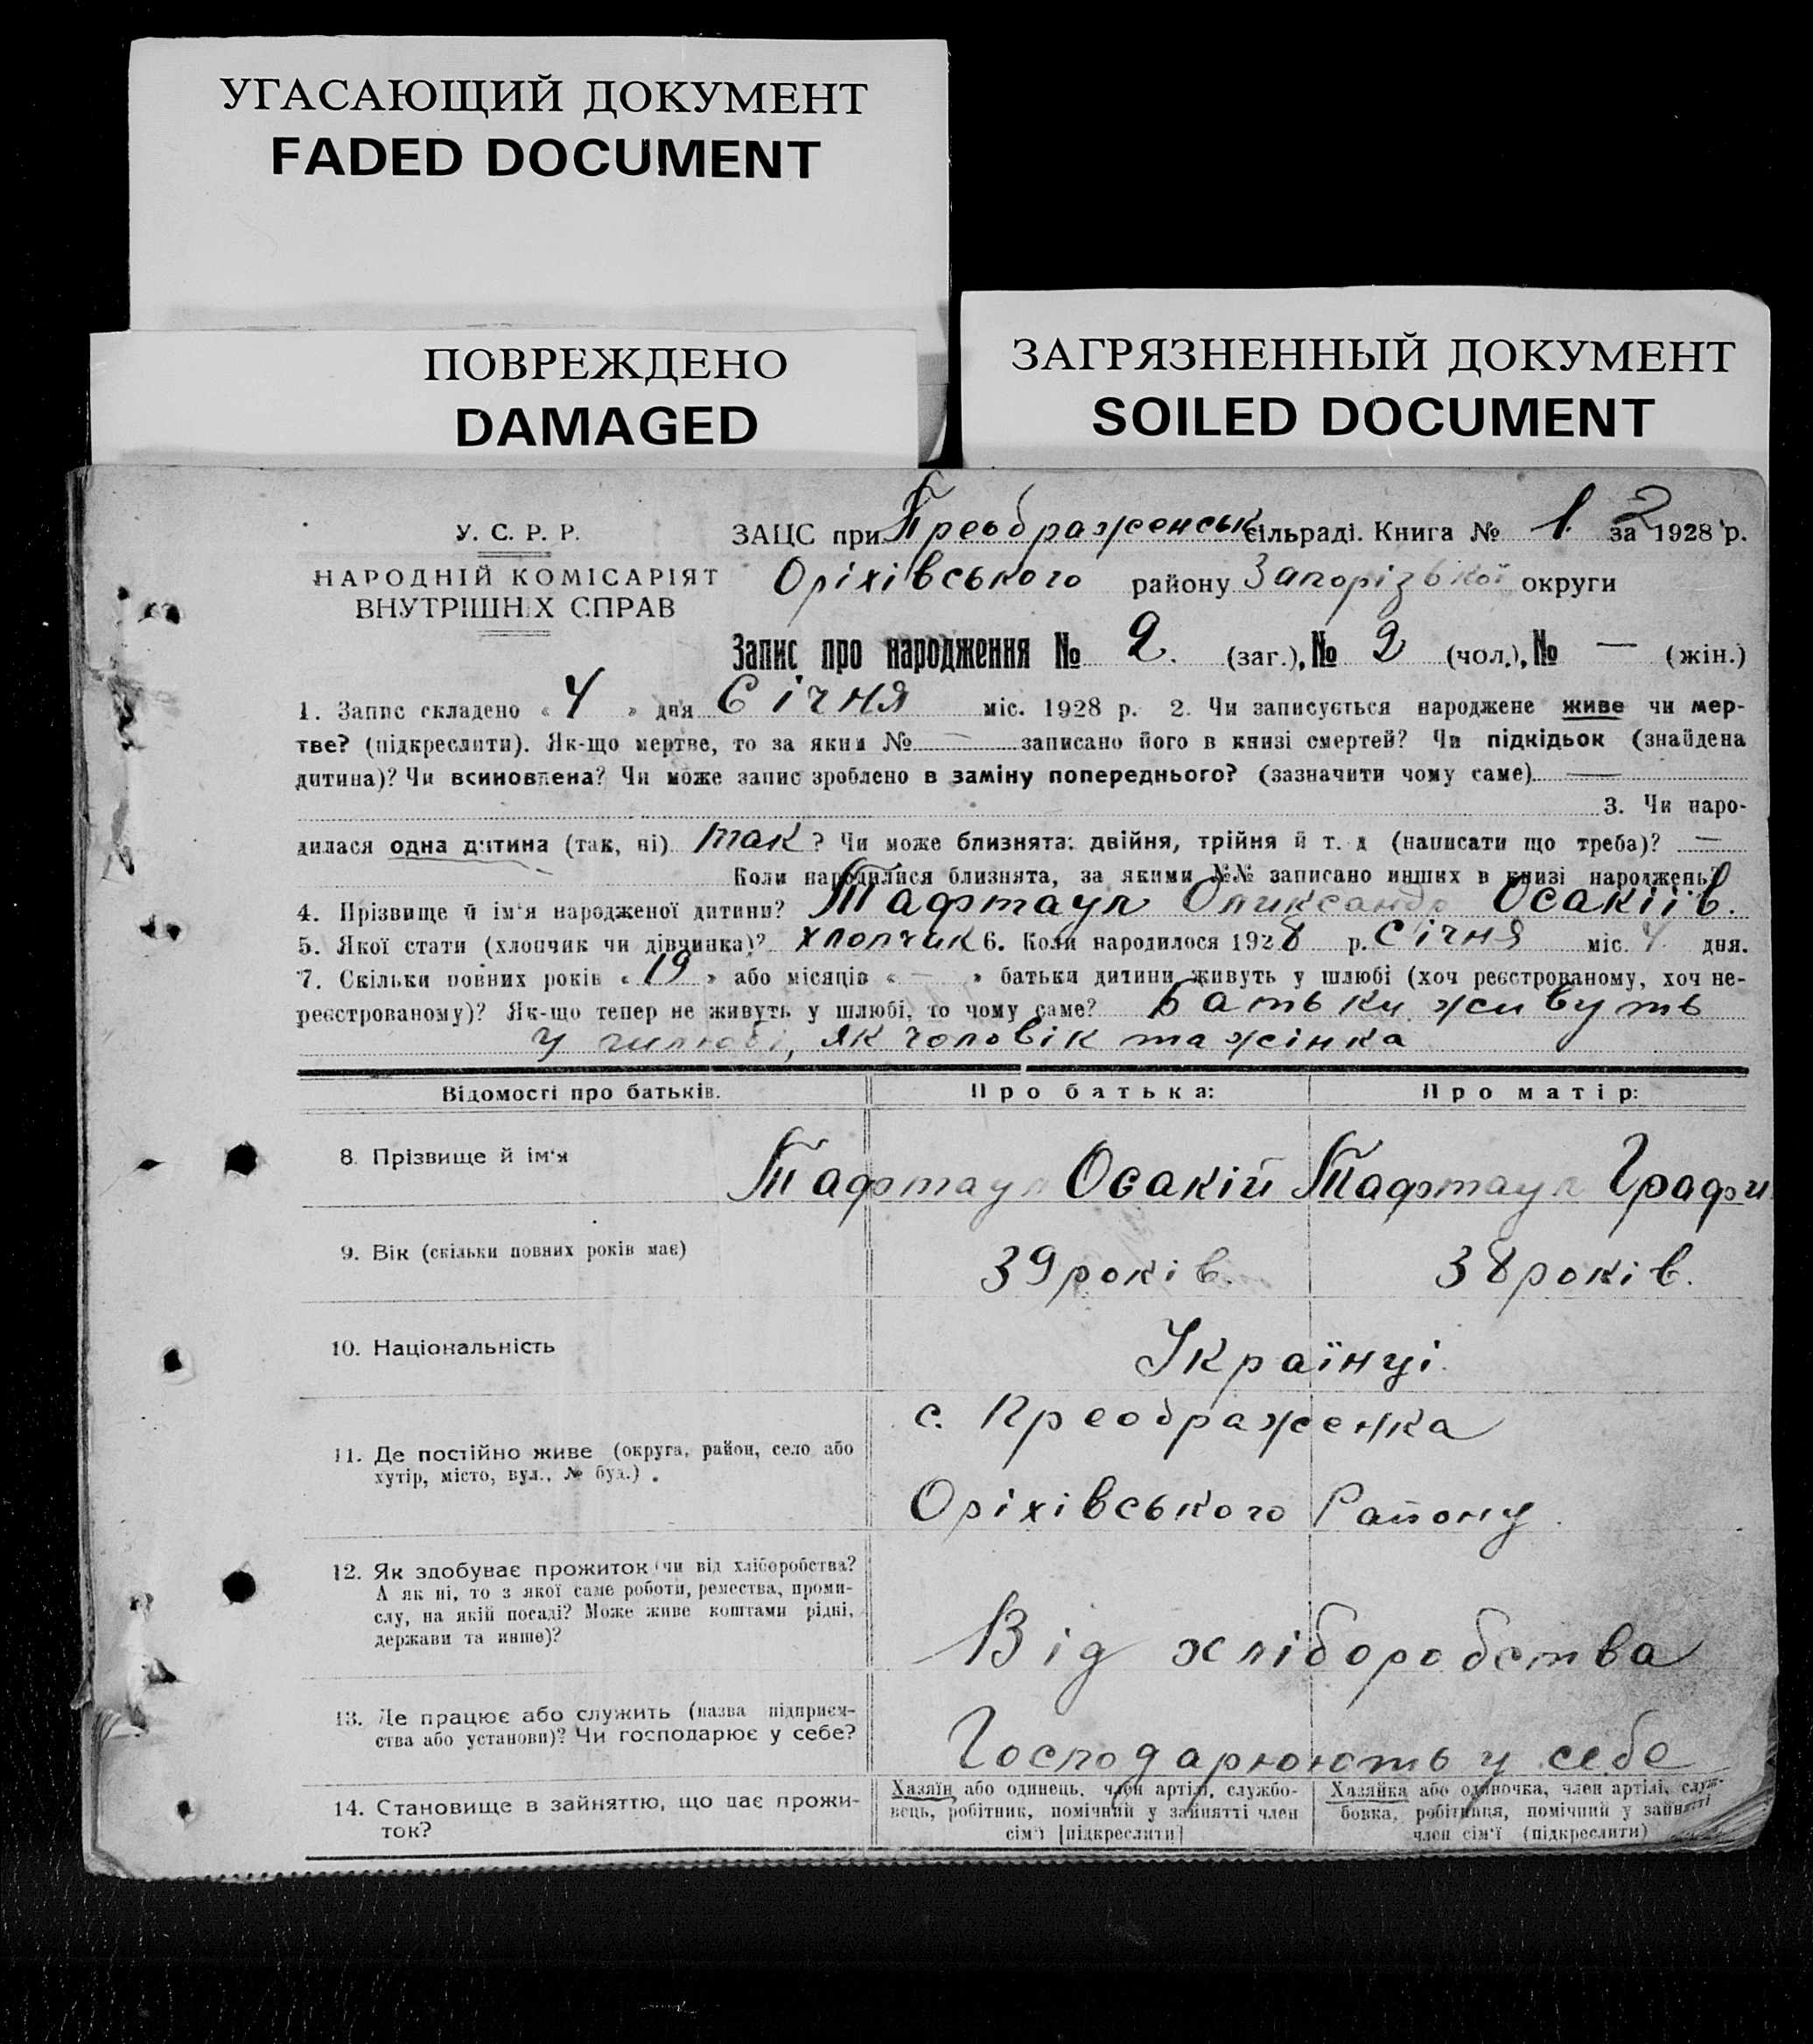 УГАСАЮЩИЙ ДОКУМЕНТ
FADED DOCUMENT
ПОВРЕЖДЕНО
DAMAGED
ЗАГРЯЗНЕННЫЙ ДОКУМЕНТ
SOILED DOCUMENT
2
У. С. Р. Р.
НАРОДНІЙ КОМІСАРІЯТ
ВНУТРІШНІХ СПРАВ
ЗАЦС при Преображенськ сільраді. Книга № 1. за 1928 р.
Оріхівського району Запорізької округи
Запис про народження № 2. (заг.), № 2 (чол.), № — (жін.)
1. Запис складено « 4 » дня Січня міс. 1928 р. 2. Чи записується народжене живе чи мер-
тве? (підкреслити). Як-що мертве, то за яким № — записано його в книзі смертей? Чи підкідьок (знайдена
дитина)? Чи всиновлена? Чи може запис зроблено в заміну попереднього? (зазначити чому саме) —
3. Чи наро-
дилася одна дитина (так, ні) так ? Чи може близнята: двійня, трійня й т. д (написати що треба)? —
— Коли народилися близнята, за якими №№ записано инших в книзі народжень?
4. Прізвище й ім'я народженої дитини? Тафтаул Оликсандр Осакіїв.
5. Якої стати (хлопчик чи дівчинка)? хлопчик 6. Коли народилося 1928 р. Січня міс. 4 дня.
7. Скільки повних років « 19 » або місяців « — » батьки дитини живуть у шлюбі (хоч реєстрованому, хоч не-
реєстрованому)? Як-що тепер не живуть у шлюбі, то чому саме? Батьки живуть
у шлюбі, як чоловік та жінка
Відомості про батьків. Про батька: Про матір:
8. Прізвище й ім'я Тафтаул Осакій Тафтаул Графи
9. Вік (скільки повних років має) 39 років. 38 років.
10. Національність Українці.
с. Преображенка
11. Де постійно живе (округа, район, село або
хутір, місто, вул., № буд.).
Оріхівського Району.
12. Як здобуває прожиток (чи від хліборобства?
А як ні, то з якої саме роботи, ремества, проми-
слу, на якій посаді? Може живе коштами рідні,
держави та инше)?
Від хліборобства
13. Де працює або служить (назва підприєм-
ства або установи)? Чи господарює у себе?
Господарюють у себе
14. Становище в зайняттю, що дає прожи-
ток?
Хазяїн або одинець, член артілі, службо-
вець, робітник, помічний у зайнятті член
сім'ї [підкреслити]
Хазяйка або одиночка, член артілі, служ-
бовка, робітниця, помічний у зайнятті
член сім'ї (підкреслити)